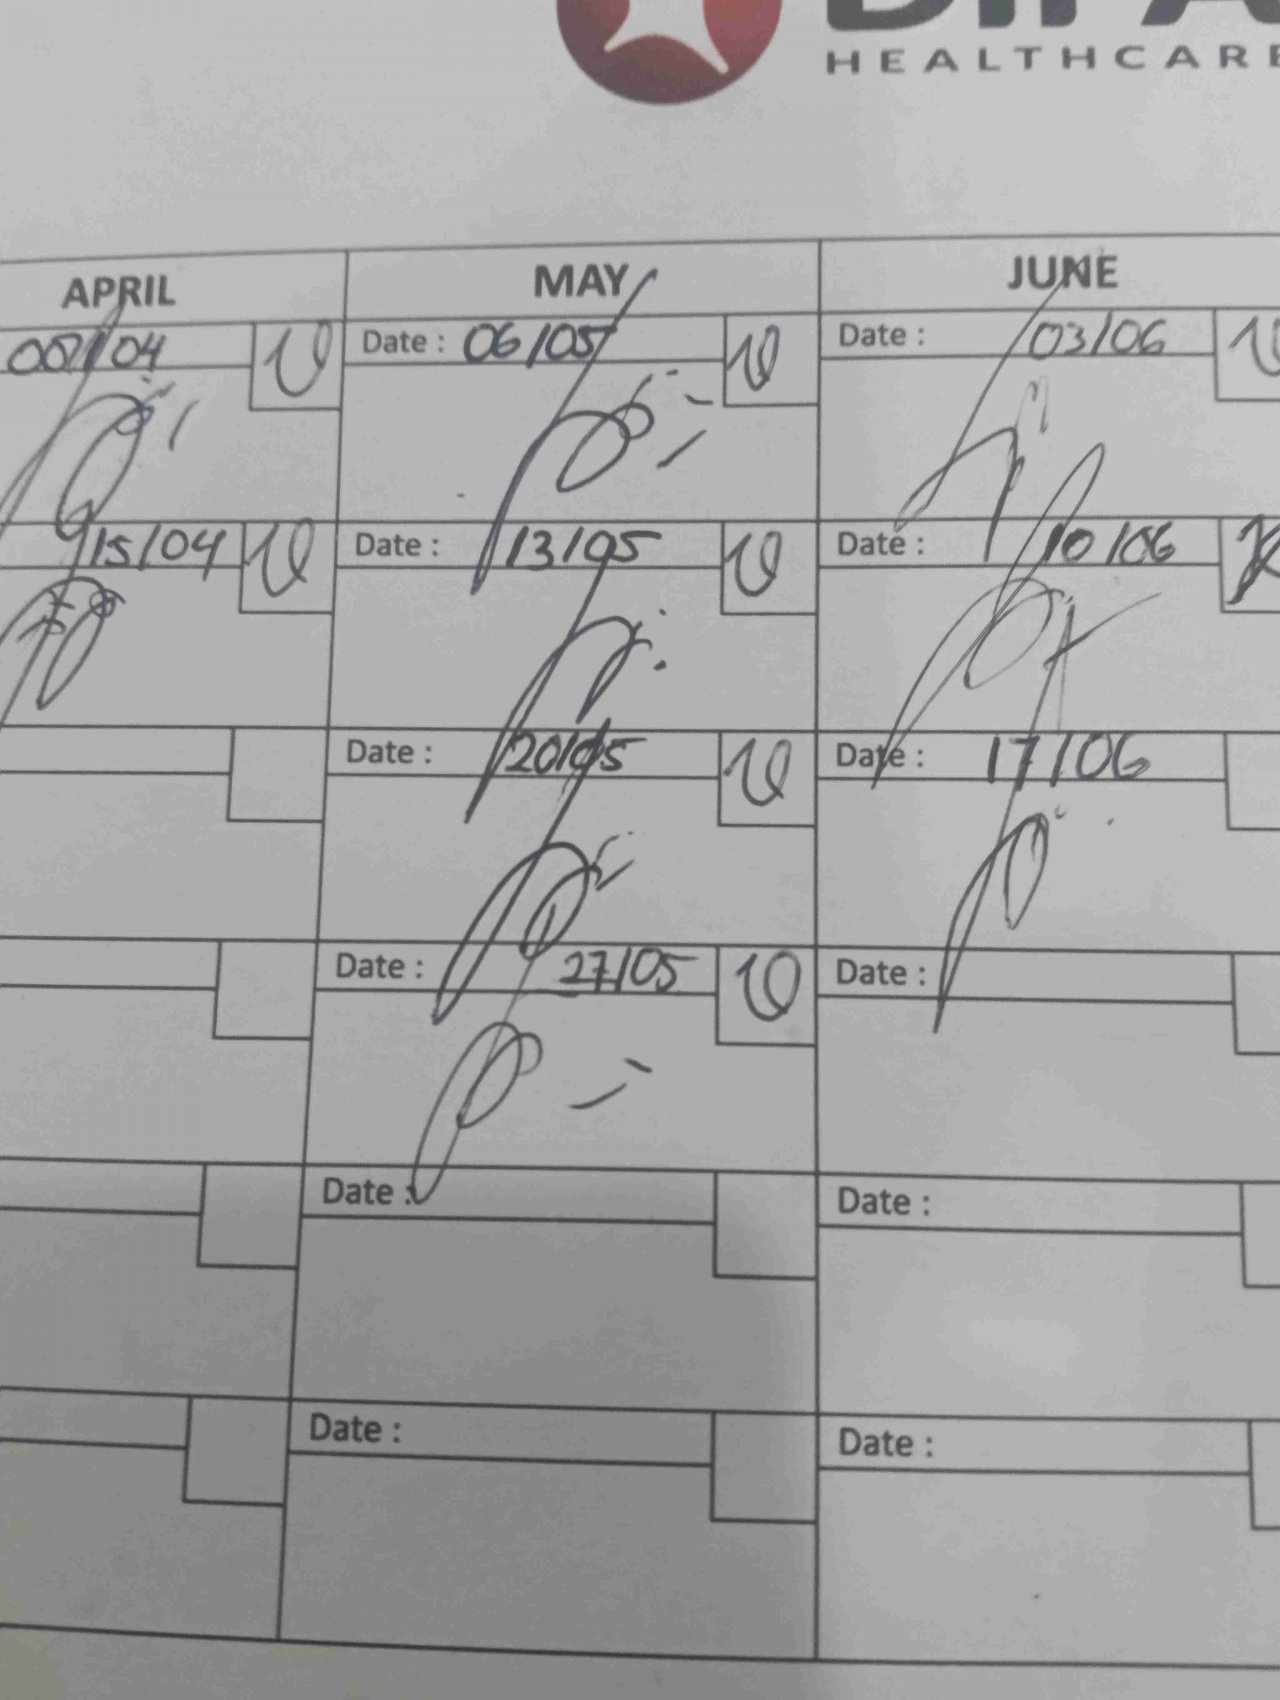 HEALTHCARE
APRIL MAY JUNE
/04 Date : 06/05 Date : 03/06
15/04 Date : 13/05 Date : 10/06
Date : 20/05 Date : 17/06
Date : 27/05 Date :
Date : Date :
Date : Date :